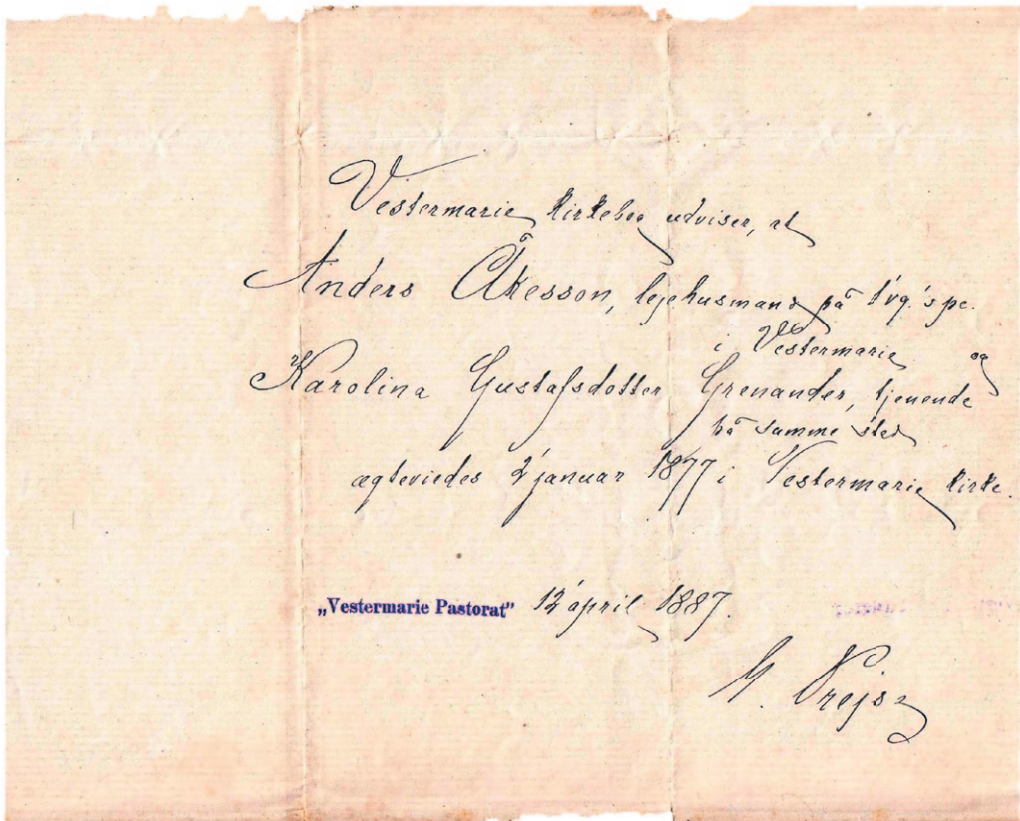 Vestermarie kirkebog udviser, at
Anders Åkesson, lejehusmand på 1 vg.'s
i Vestermarie og
Karolina Gustafsdotter Grenander, tjenende
på samme sted
ægteviedes 2' januar 1877 i Vestermarie kirke.
„Vestermarie Pastorat” 12' april 1887.